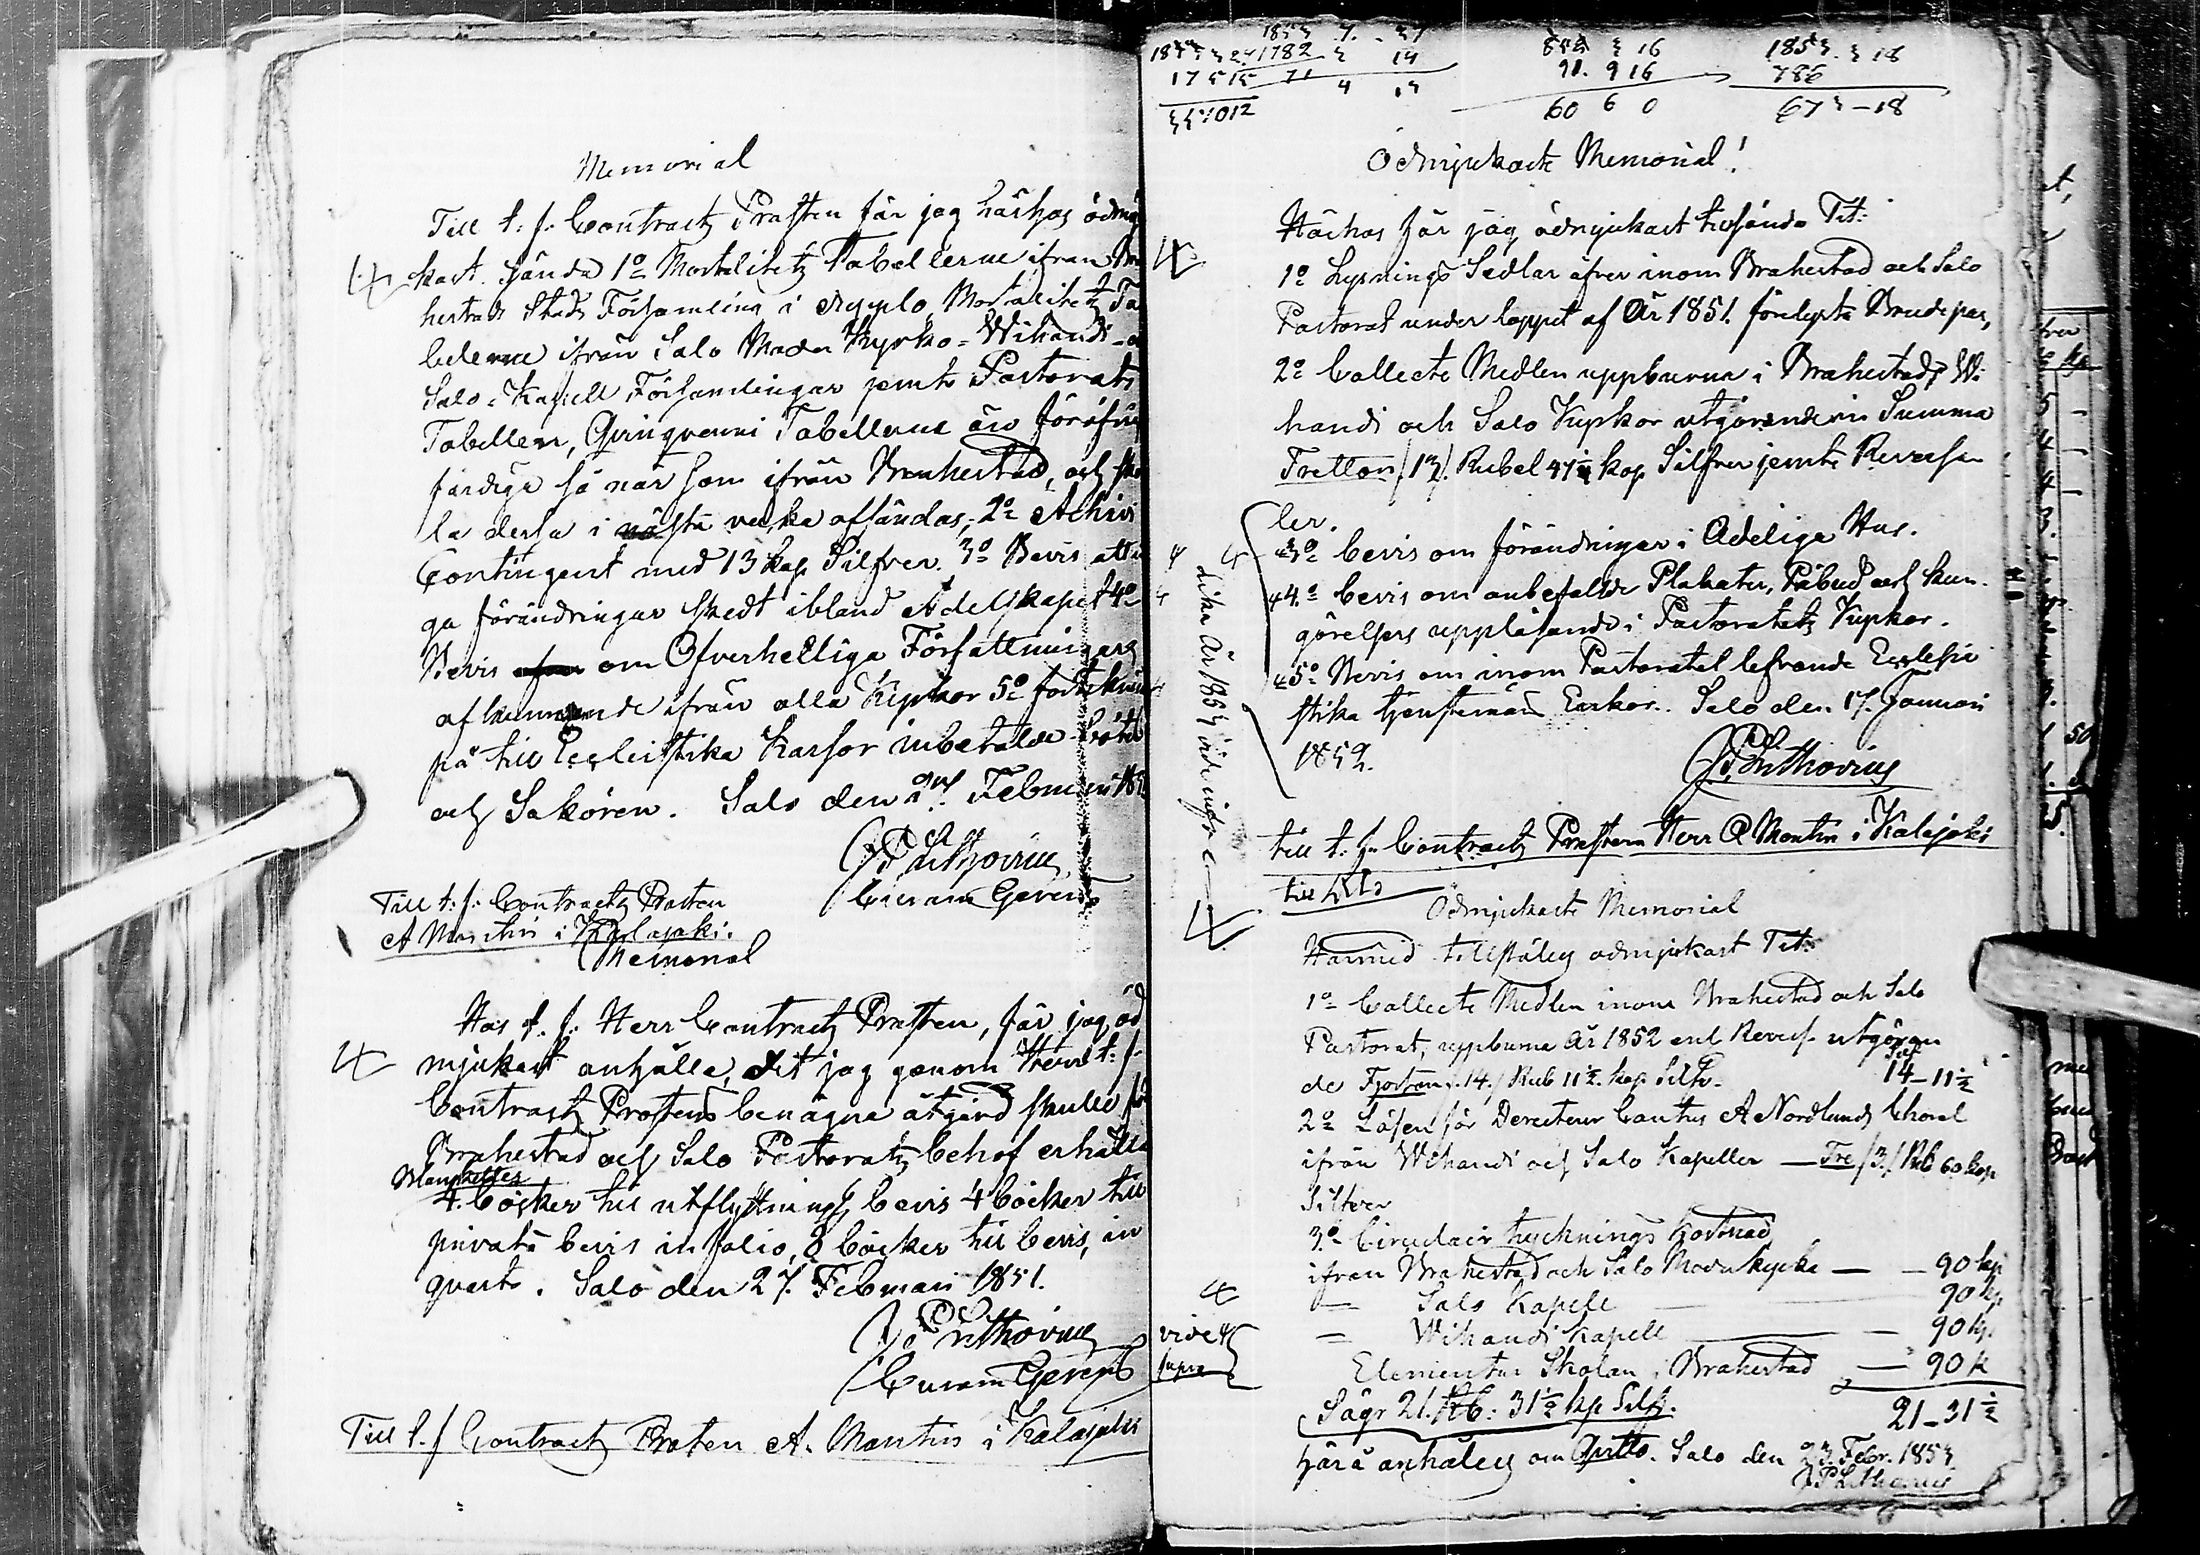 Memorial
Till t. f. Contracts Prosten får jag härhos ödmj
kast sända 1o Mortalitets Tabellerne ifrån Bra
hestads Stads Församling i duplo, Mortalitets Ta
bellerne ifrån Salo Moder Kyrko- Wihandi- o
Salo-Kapell Församlingar jemte Pastorats
Tabellen, Qvinqvenni Tabellerne äro föröfrig
färdiga så när som ifrån Brahestad, och sko
la dessa i nästa vecka afsändas, 2o Archivi
Contingent med 13 kop. Silfver. 3o Bevis att in
ga förändringar skedt ibland Adelskapet 4o
Bevis om Ofverhetliga Författningars
afkunnande ifrån alla Kyrkor 5o förtekni
på till Ecclesistika Kassor inbetalde böter
och Sakören. Salo den 27. Februari 185
J P Lithovius
Curam Gerens
Till t. f. Contracts Prosten
A Montin i Kalajoki.
Memorial
Hos t. f. Herr Contracts Prosten, får jag öd
mjukast anhålla, det jag genom Herr t. f.
Contracts Prostens benägna åtgärd skulle fö
Brahestad och Salo Pastorats behof erhålla
Blanketter
4. böcker till utflyttnings bevis 4 böcker till
privata bevis in folio, 8 böcker till bevis, in
qvarto. Salo den 27. Februari 1851.
J P Lithovius
Curam Gerens
Till t. f. Contracts Prosten A. Montin i Kalajoki
1782
60 6 0
Ödmjukaste Memorial!
Härhos får jag ödmjukast tillsända Tit:
1o Lysnings Sedlar öfver inom Brahestad och Salo
Pastorat under loppet af År 1851. förelysta Brudepar,
2o Collecte Medlen uppburna i Brahestads, Wi
handi och Salo Kyrkor utgörande in Summa
Tretton /13/. Rubel 41½ kop Silfver jemte Reversa
ler.
3o bevis om förändringar i Adeliga Hus.
4o bevis om anbefallde Plakater, Påbud och kun
görelsers uppläsande i Pastoratets Kyrkor.
5o Bevis om inom Pastoratet lefvande Ecclesia
stika tjenstemäns Enkor. Salo den 17. Januari
1852.
J P Lithovius
Lika År 1853
till t. f. Contracts Prosten Herr A Montin i Kalajoki
till dito
Ödmjukaste Memorial
Härmed tillställes ödmjukast Tit:
1o Collecte Medlen inom Brahestad och Salo
Pastorat, uppburna År 1852 enl Revers. utgöran
de Fjorton /14./ Rub 11½ kop Silfv. 14–11½
2o Lösen för Directeur Cantus A Nordlunds Choral
ifrån Wihandi och Salo Kapeller — Tre /3./ Rub 60 kop
Silfver
3o Circulair tryknings kostnad
ifrån Brahestad och Salo Moderkyrka — 90 kp
— Salo Kapell — 90 kp
= Wihandi Kapell — 90 kp.
Elementar Skolan i Brahestad — 90 k
vide
supra
Säger 21. Rb: 31½ kp Silfv. 21–31½
härå anhålles om Qvitto. Salo den 23. Febr. 1853
J P Lithovius